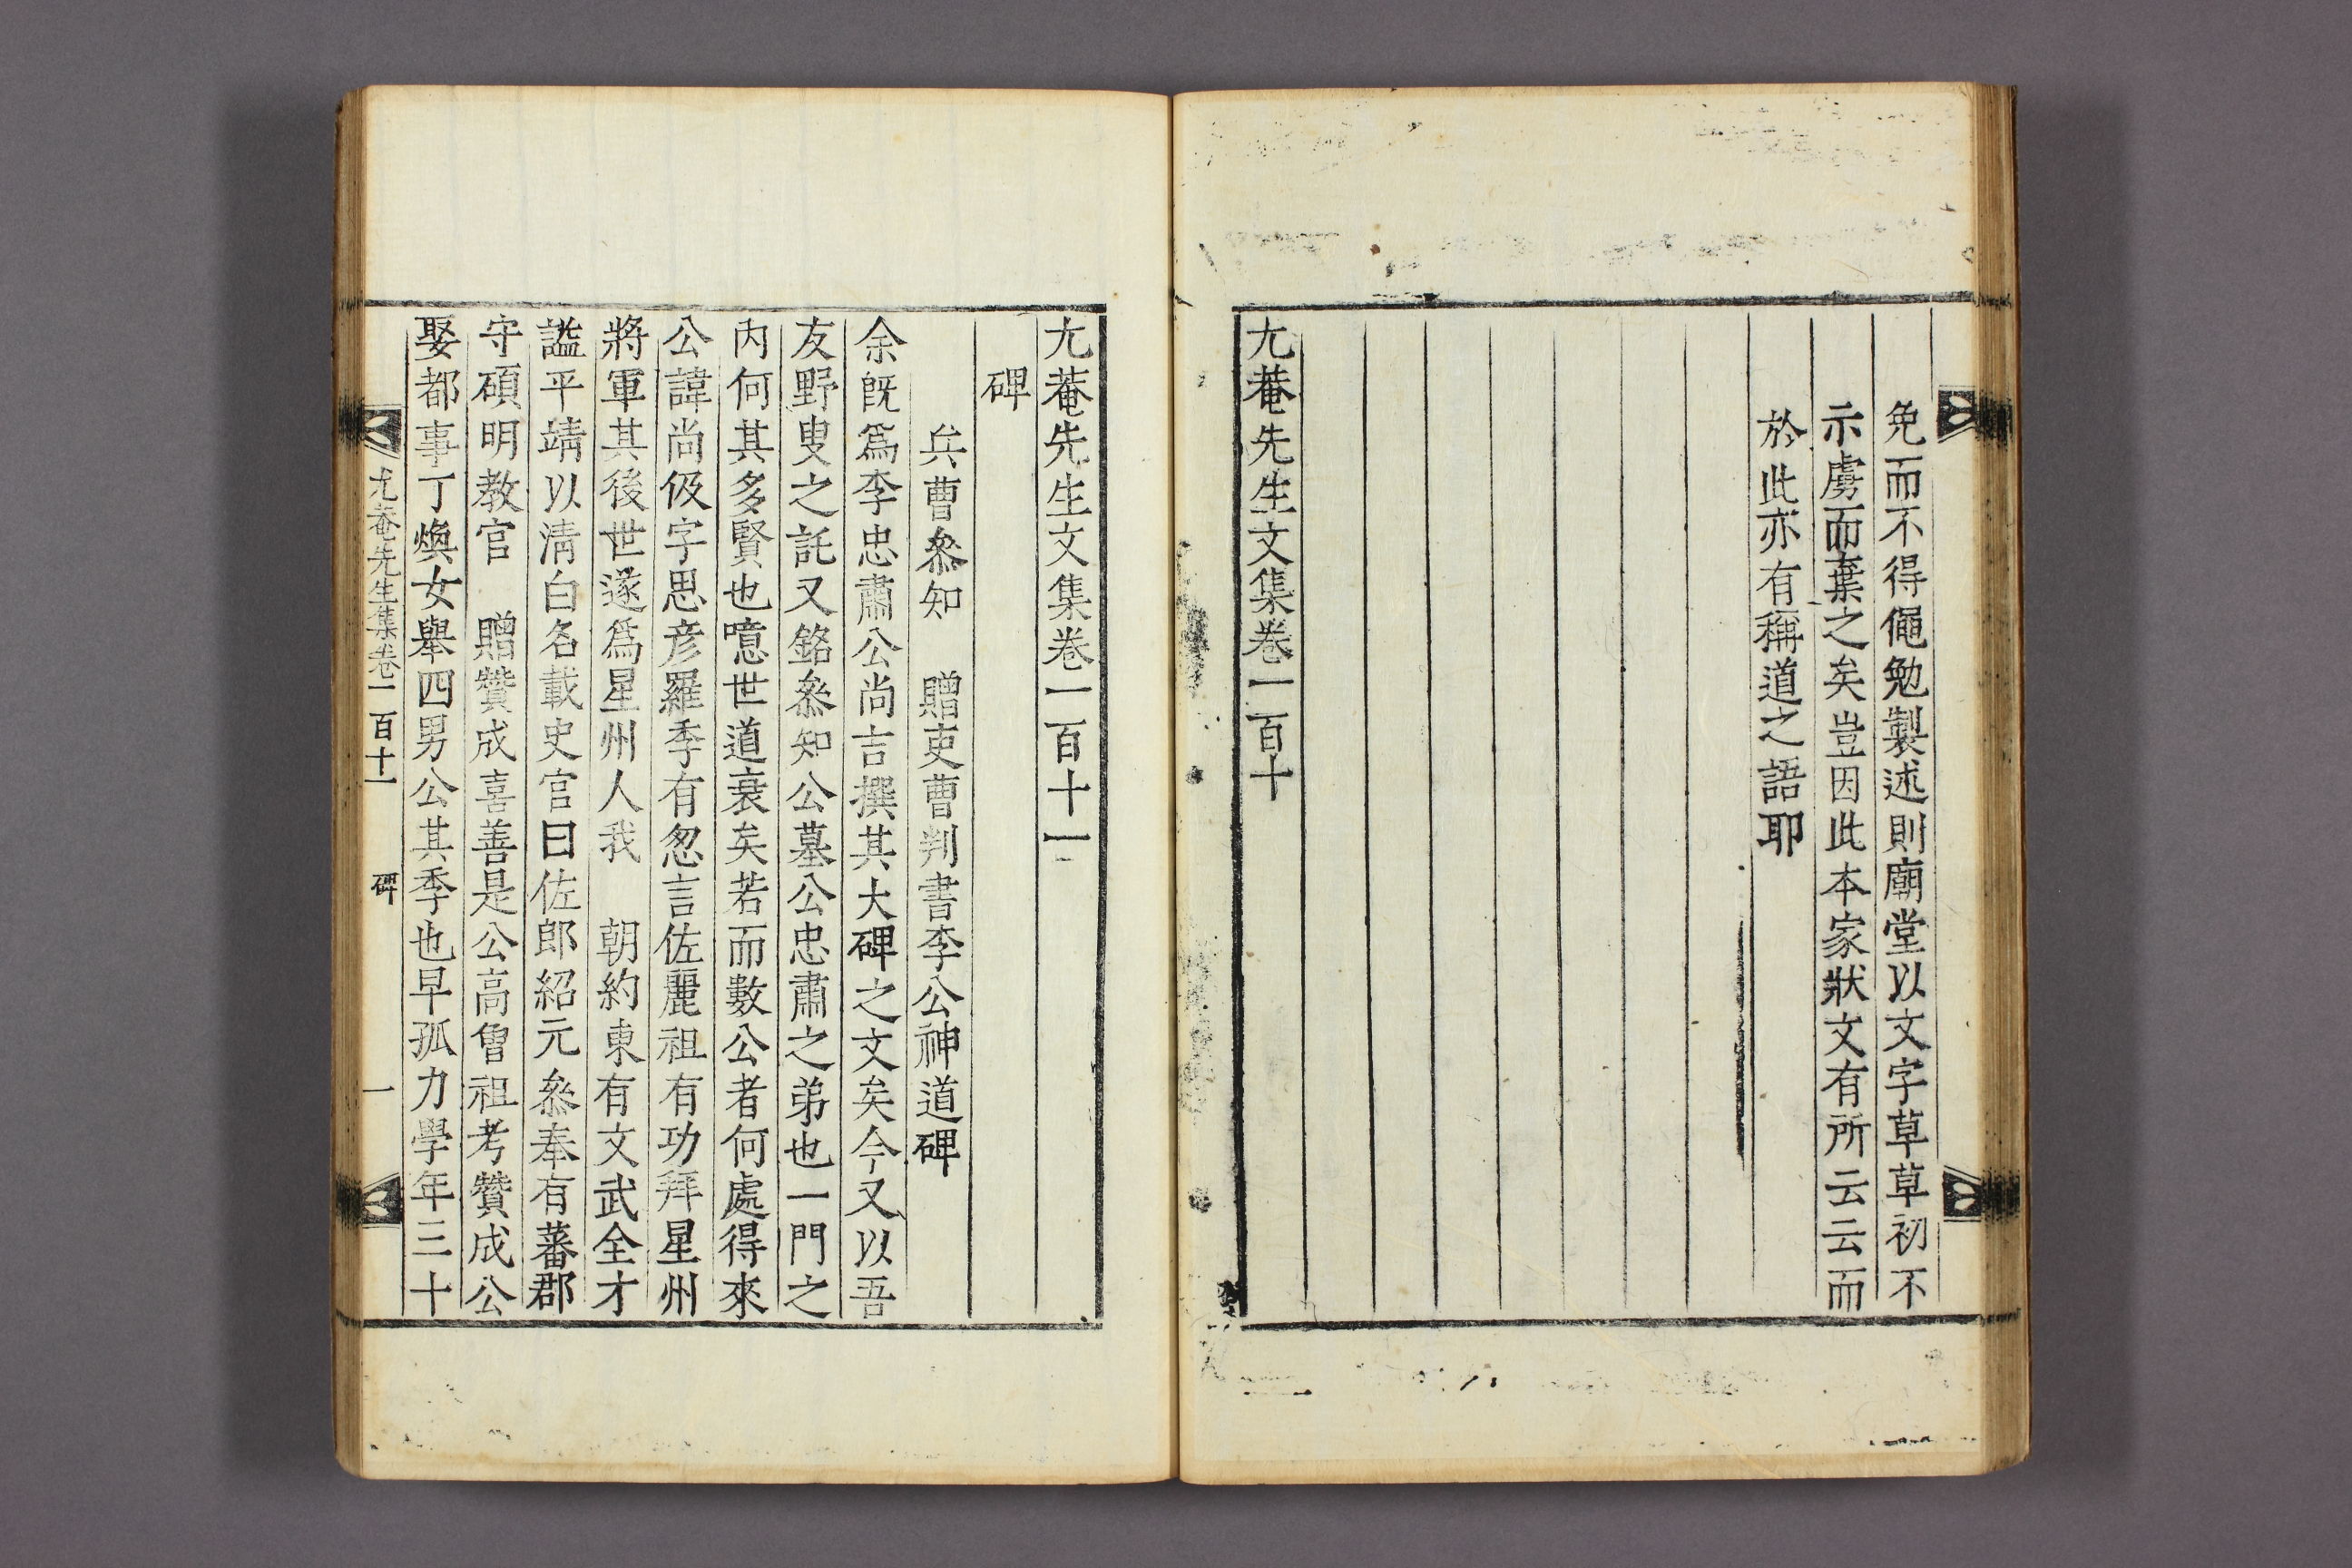 免而不得僶勉製述則廟堂以文字草草初不
示虜而棄之矣豈因此本家狀文有所云云而
於此亦有稱道之語耶
尤菴先生文集卷一百十
尤菴先生文集卷一百十一
碑
兵曹叅知 贈吏曹判書李公神道碑
余旣爲李忠肅公尚吉撰其大碑之文矣今又以吾
友野叟之託又銘叅知公墓公忠肅之弟也一門之
内何其多賢也噫世道衰矣若而數公者何處得來
公諱尚伋字思彦羅季有怱言佐麗祖有功拜星州
將軍其後世遂爲星州人我 朝約東有文武全才
謚平靖以淸白名載史官曰佐郎紹元叅奉有蕃郡
守碩明教官 贈贊成喜善是公高曾祖考贊成公
娶都事丁煥女舉四男公其季也早孤力學年三十
尤菴先生集卷一百十一 碑 一